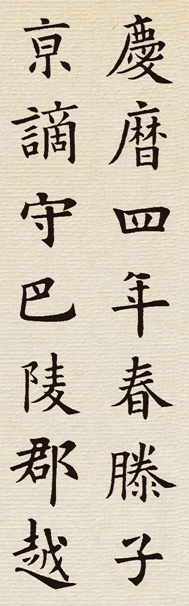 慶暦四年春滕子
京謫守巴陵郡越